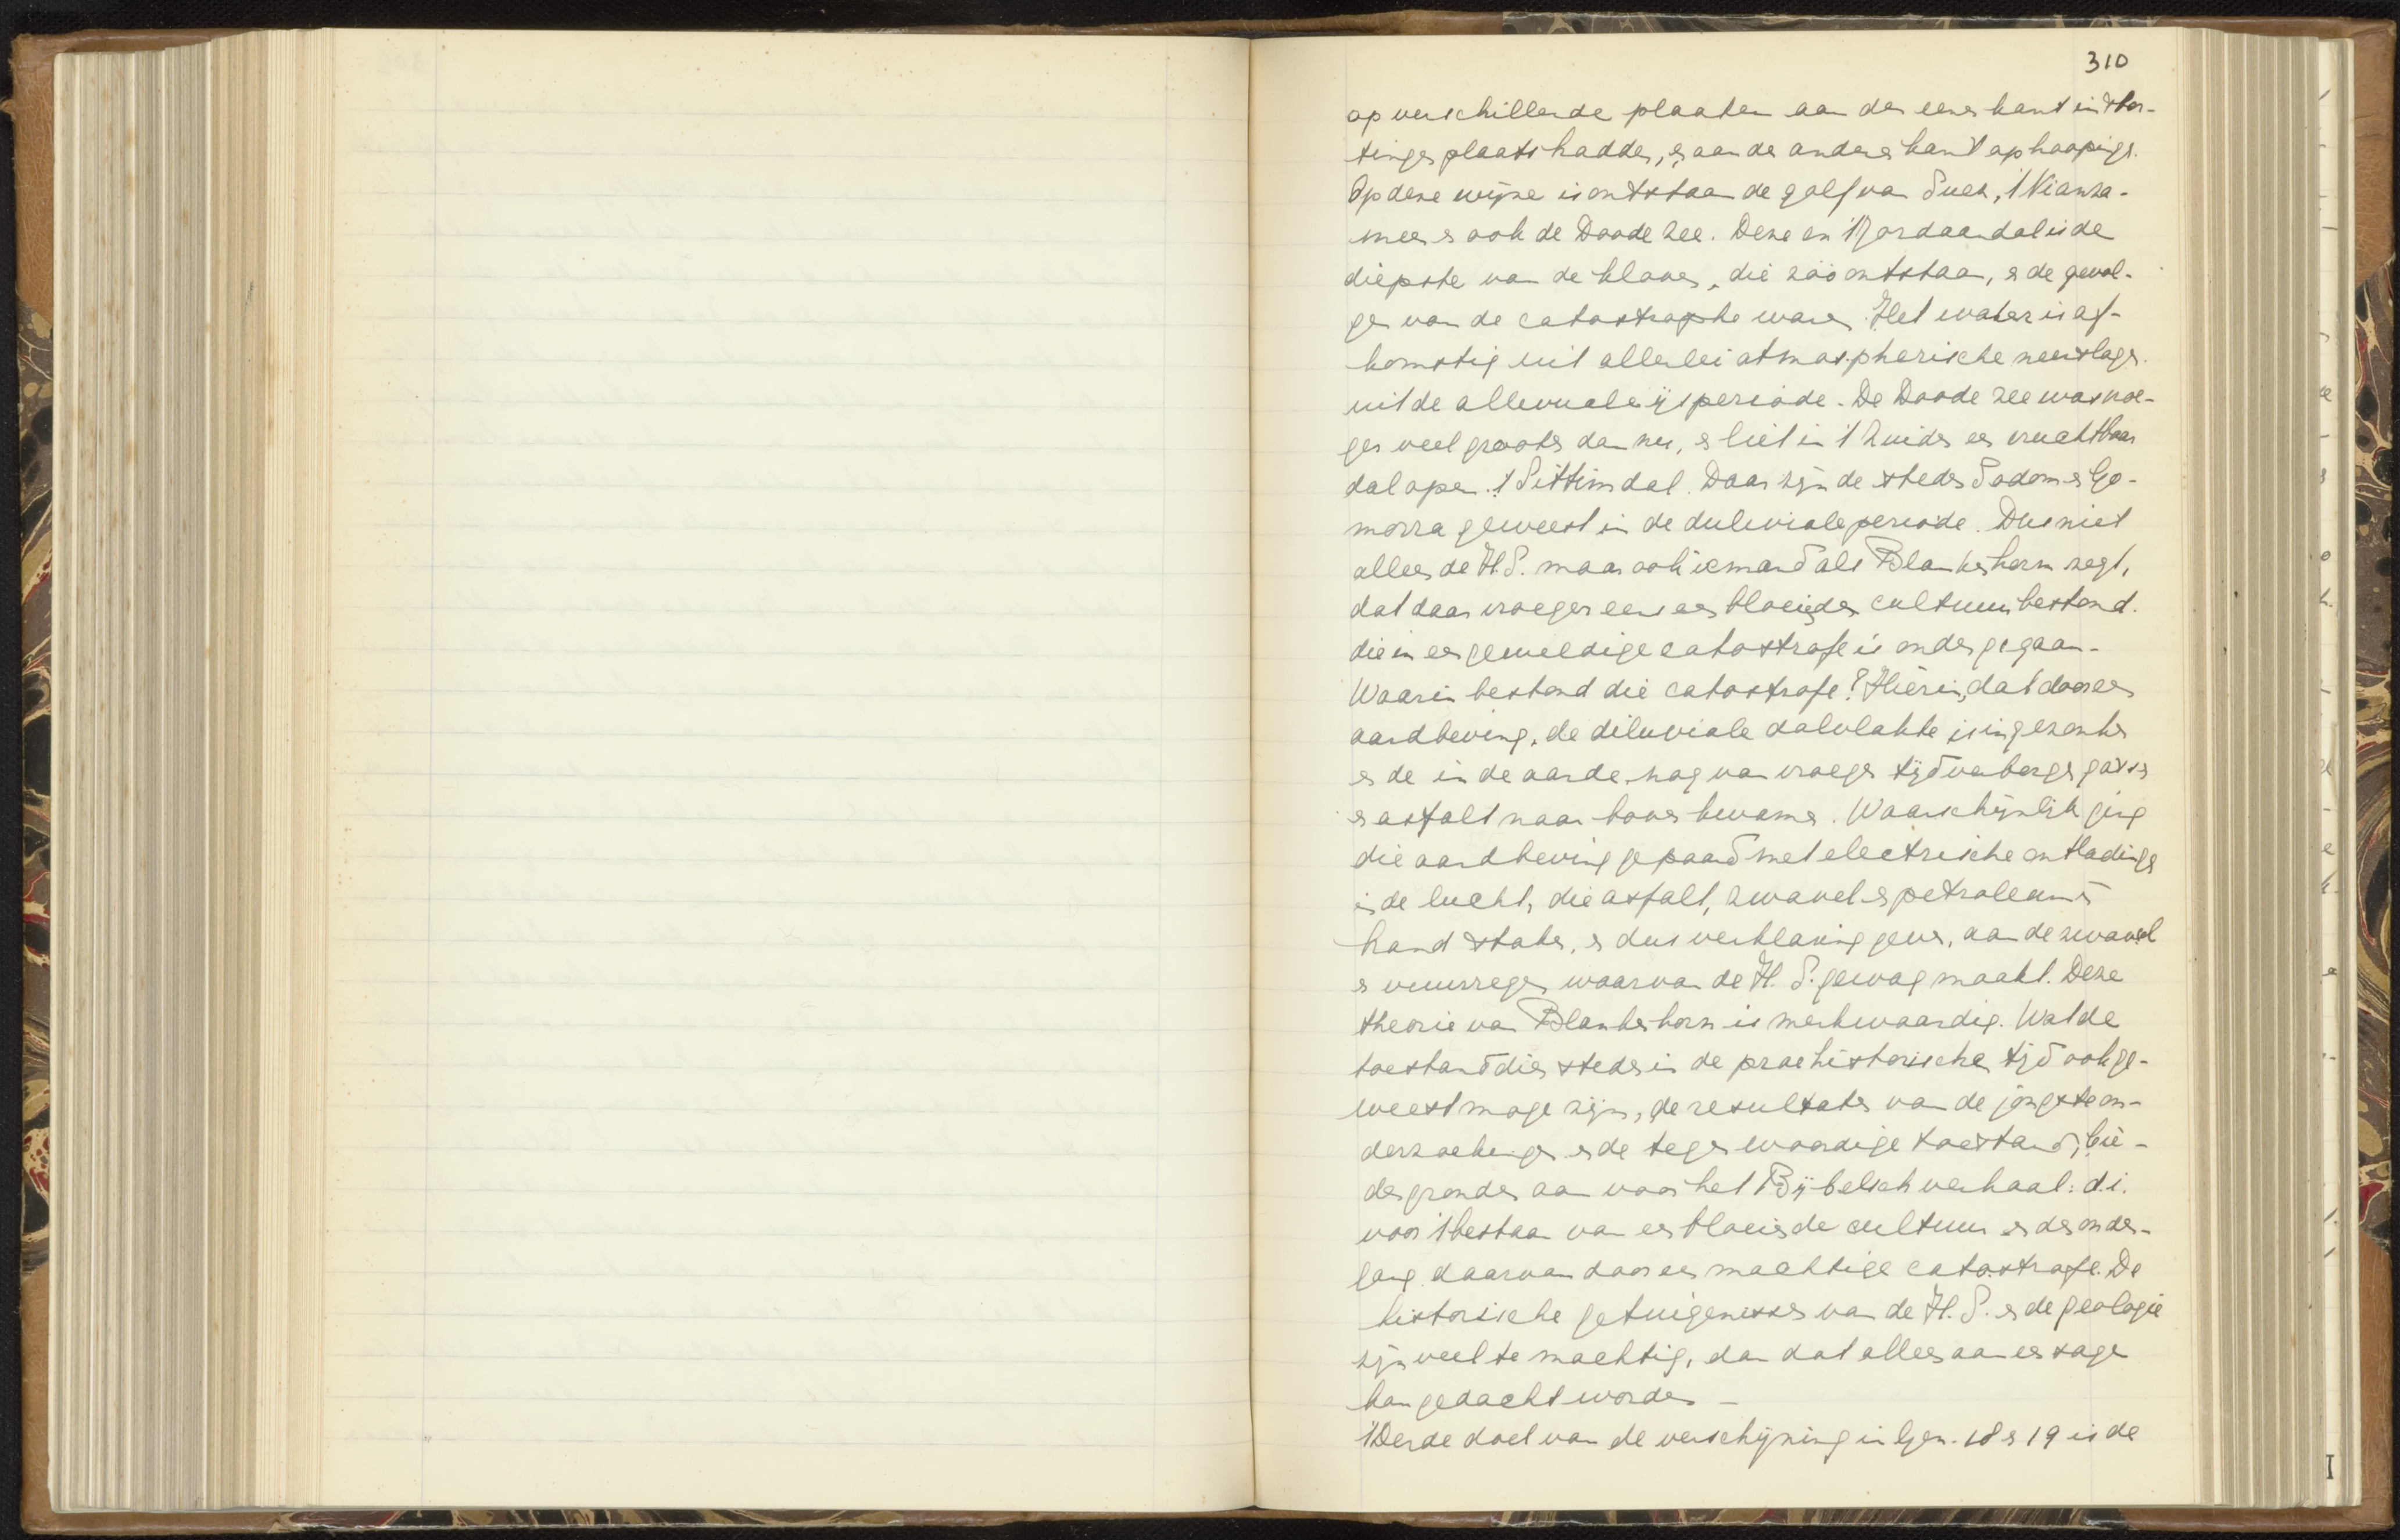 310
op verschillende plaatsen aan den eenen kant instor-
tingen plaats hadden, en aan de anderen kant ophoopingen.
Op deze wijze is ontstaan de golf van Suez, 't Nianza-
meer en ook de Doode Zee. Deze en 't Jordaandal is de
diepste van de kloven, die zóó ontstaan, en de gevol-
gen van de catastrophe waren. Het water is af-
komstig uit allerlei atmospherische neerslagen.
uit de alluviale ijsperiode. De Doode Zee was vroe-
ger veel grooter dan nu, en liet in 't Zuiden een vruchtbaar
dal open. 't Sittimdal. Daar zijn de steden Sodom en Go-
morra geweest in de duluviale periode. Dus niet
alleen de H.S. maar ook iemand als Blankenhorn zegt,
dat daar vroeger eens een bloeiende cultuur bestond.
die in een geweldige catastrofe is ondergegaan.
Waarin bestond die catastrofe? Hierin, dat door een
aardbeving, de diluviale dalvlakte is ingezonken
en de in de aarde, nog van vroeger tijd verborgen gassen
en asfalt naar boven kwamen. Waarschijnlijk ging
die aardbeving gepaard met electrische ontladingen
in de lucht, die asfalt, zwavel en petroleum in
brand staken, en dus verklaring geven, aan de zwavel
en vuurregen waarvan de H.S. gewag maakt. Deze
theorie van Blankenhorn is merkwaardig. Wat de
toestand dier steden in de praehistorische tijd ook ge-
weest moge zijn, de resultaten van de jongste on-
derzoekingen en de tegenwoordige toestand, bie-
den gronden aan voor het Bijbelsch verhaal: d.i.
voor 't bestaan van een bloeiende cultuur en de onder-
gang daarvan door een machtige catastrofe. De
historische getuigenissen van de H.S. en de geologie
zijn veel te machtig, dan dat alleen aan een sage
kan gedacht worden –
't Derde doel van de verschijning in Gen. 18 en 19 is de